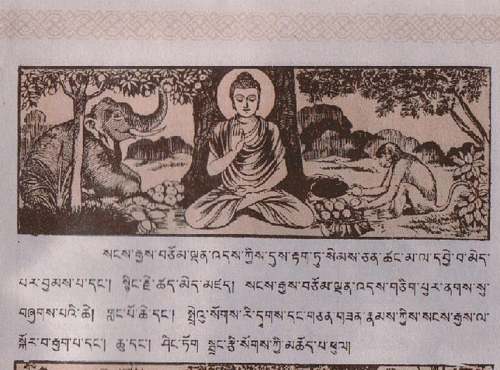 སངས་རྒྱས་བཅོམ་ལྡན་འདས་ཀྱིས་དུས་རྟག་ཏུ་སེམས་ཅན་ཚང་མ་ལ་དབྱེ་བ་མེད་
པར་བྱམས་པ་དང་། སྙིང་རྗེ་ཚད་མེད་མཛད། སངས་རྒྱས་བཅོམ་ལྡན་འདས་གཅིག་པུར་ནགས་སུ་
བཞུགས་པའི་ཚེ། གླང་པོ་ཆེ་དང་། སྤྲེའུ་སོགས་རི་དྭགས་དང་གཅན་གཟན་རྣམས་ཀྱིས་སངས་རྒྱས་ལ་
སྐོར་བ་རྒྱག་པ་དང་། ཆུ་དང་། ཤིང་ཏོག སྦྲང་རྩི་སོགས་ཀྱི་མཆོད་པ་ཕུལ།